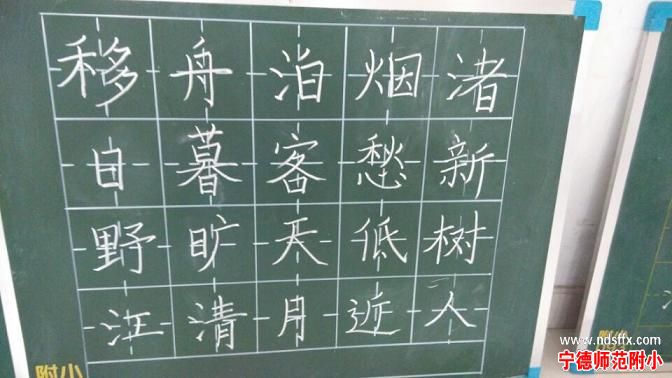 移舟泊烟渚
日暮客愁新
野旷天低树
江清月近人
附小
附小
www.ndsffx.com
宁德师范附小